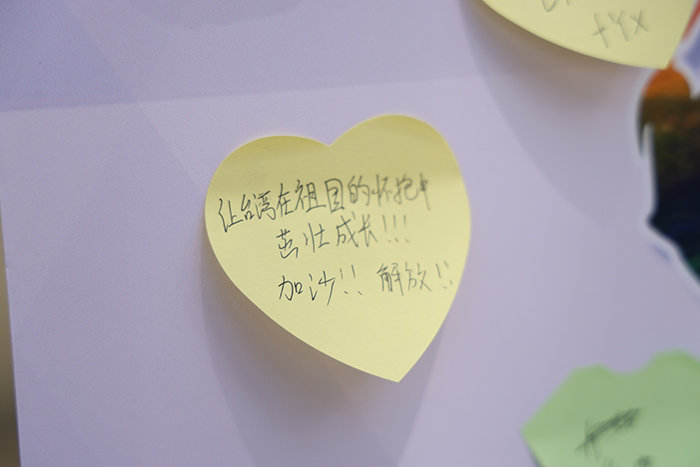 tYX
让台湾在祖国的怀抱中
茁壮成长!!!
加沙!! 解放!!